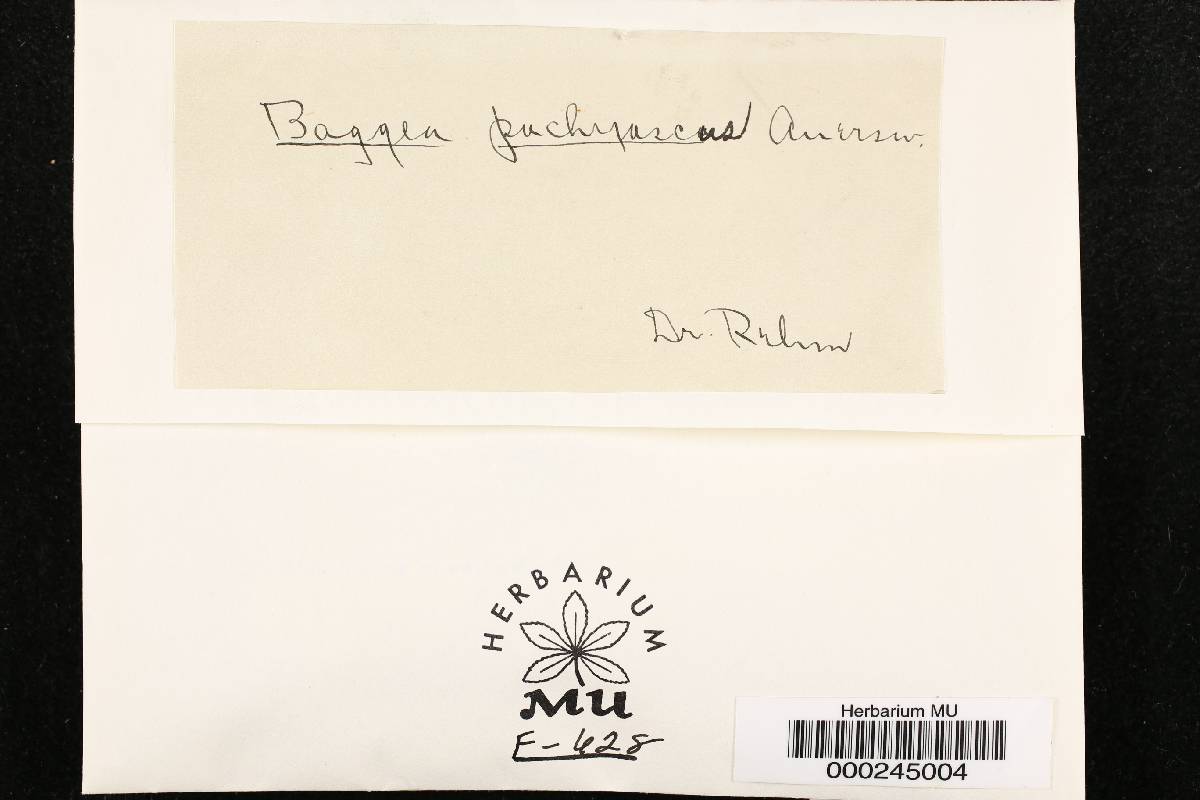 Baggea pachyascus Auersw.
Dr. Rehm
HERBARIUM
MU
F-628
Herbarium MU
000245004